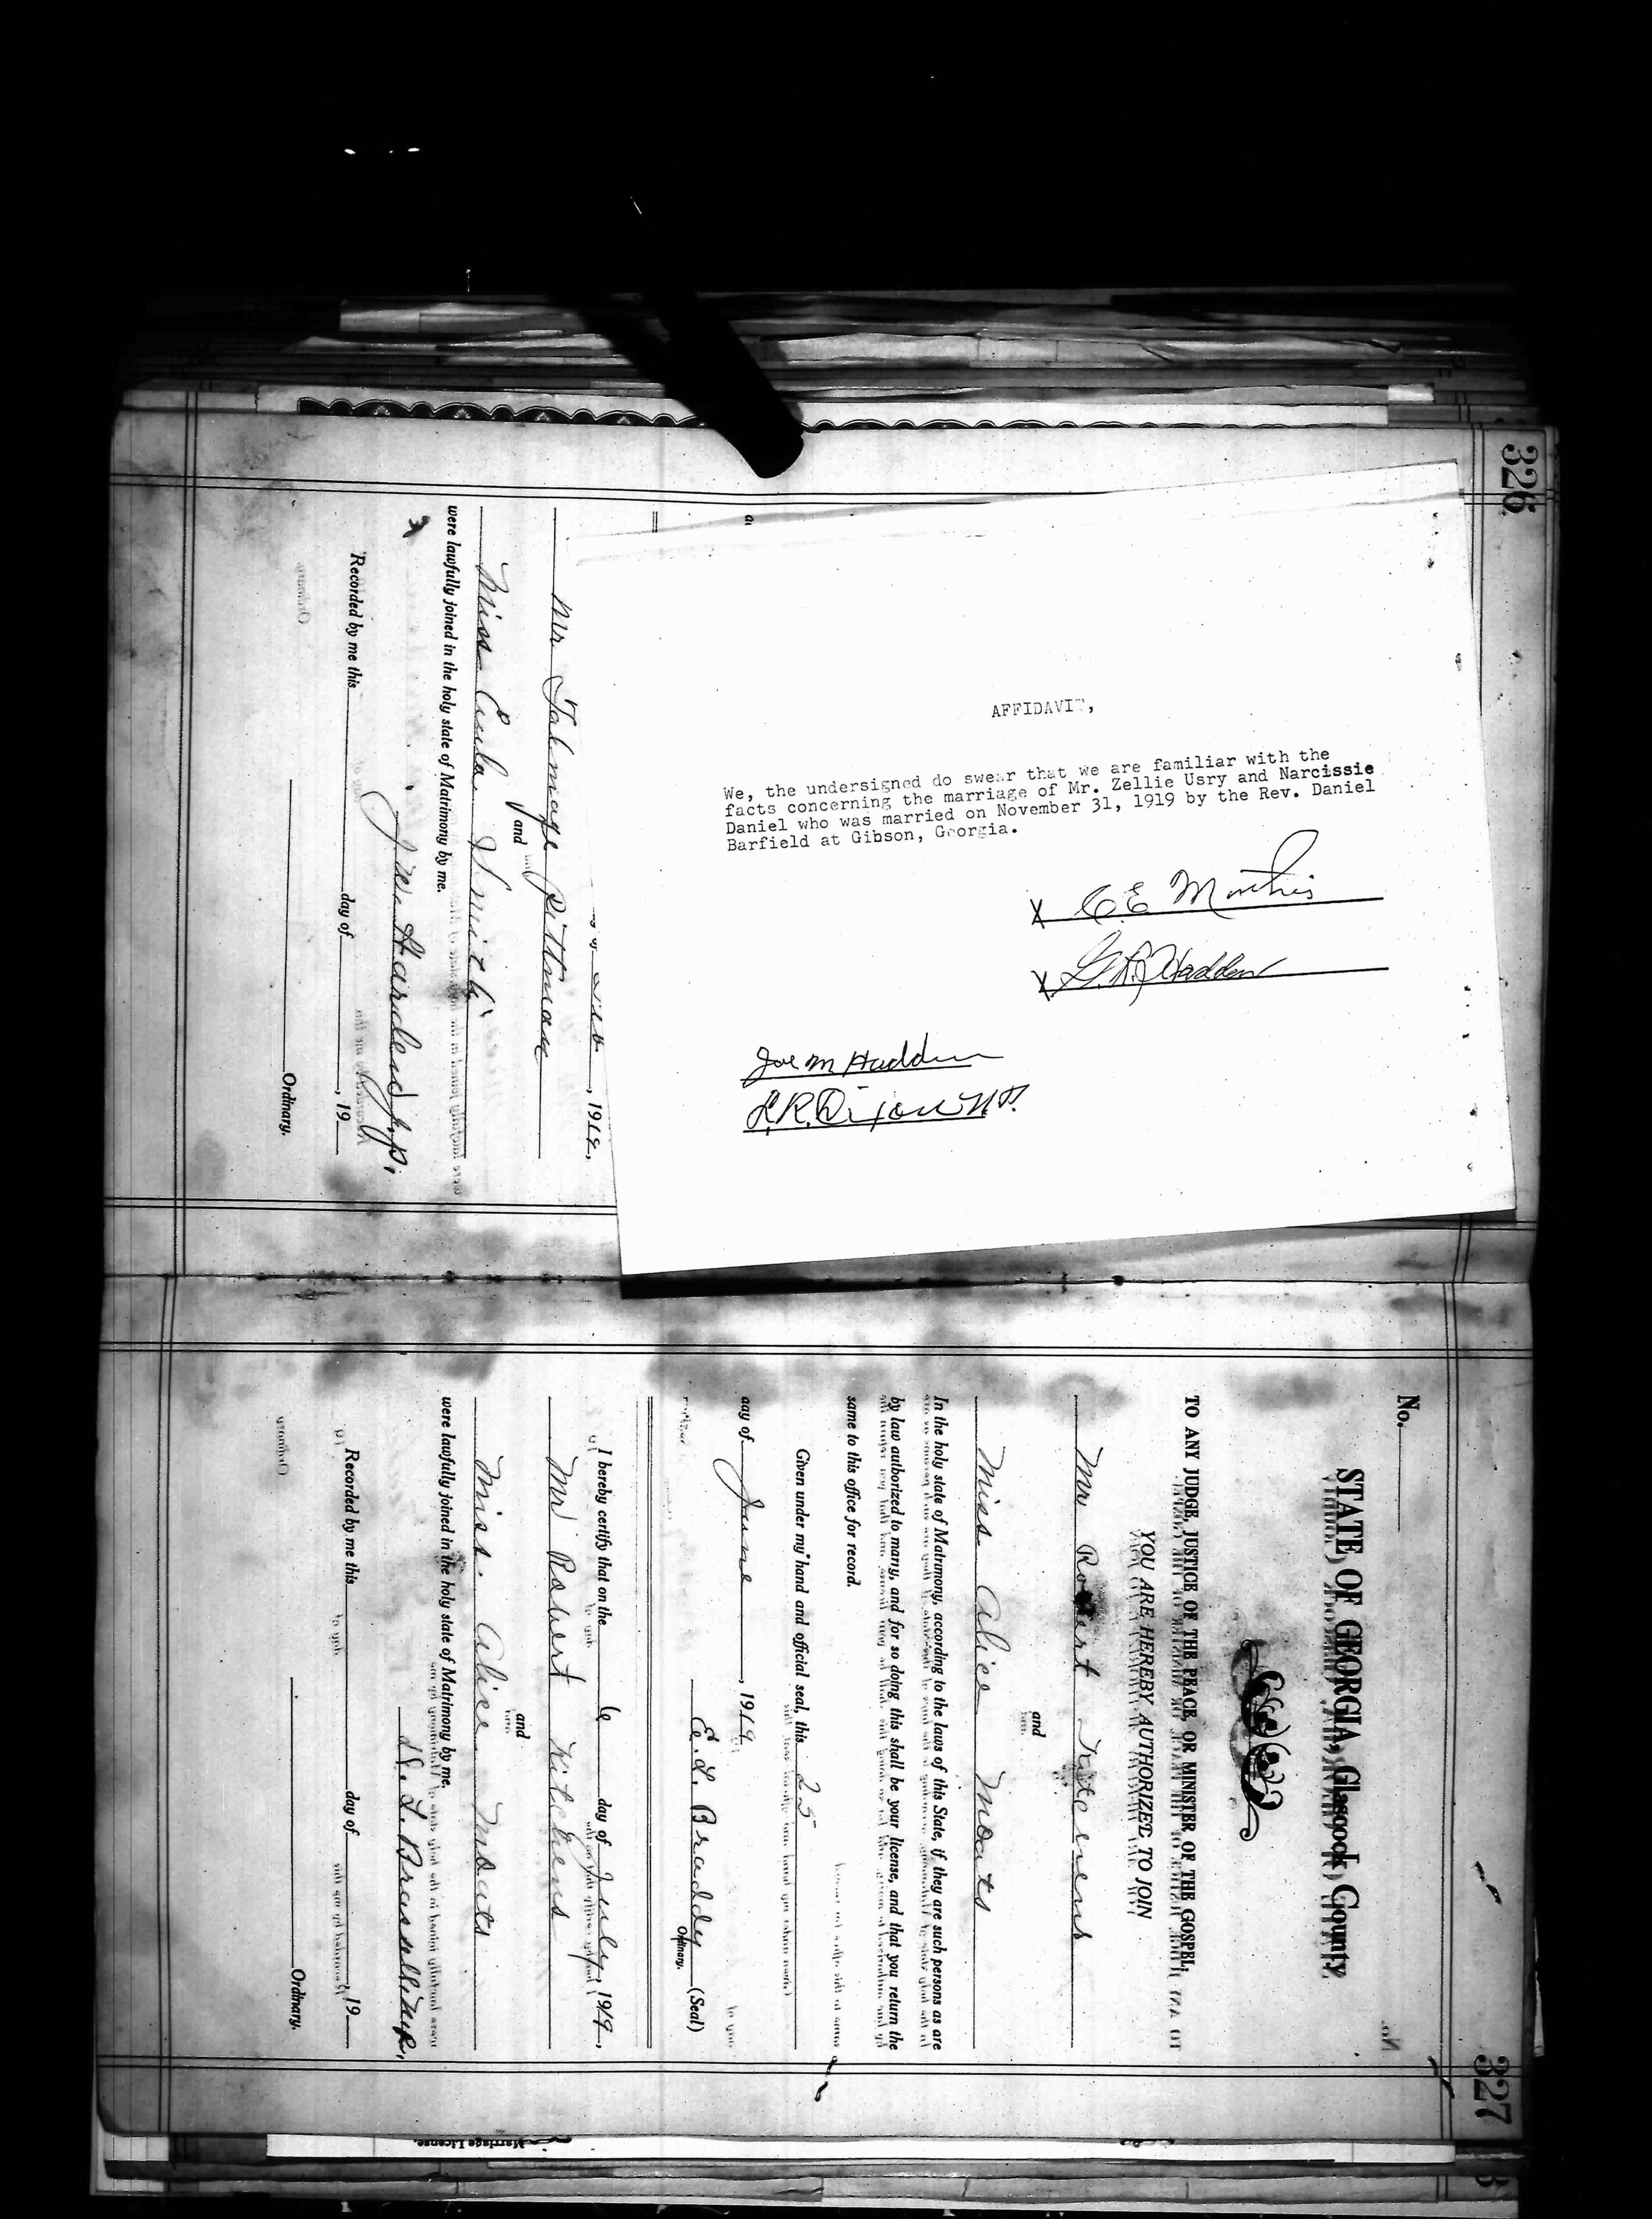 326
AFFIDAVIT,
We, the undersigned do swear that we are familiar with the
facts concerning the marriage of Mr. Zellie Usry and Narcissie
Daniel who was married on November 31, 1919 by the Rev. Daniel
Barfield at Gibson, Georgia.
X C. E. Mathis
X G. A. Hadden
Joe M Hadden
L. R. Dixon N.P.
, 1919,
Mr Talmage Pittman
and
Miss Eula Smith
were lawfully joined in the holy state of Matrimony by me.
J. W. Harden J. P.
Recorded by me this day of , 19
Ordinary.
327
No.
STATE OF GEORGIA, Glascock County
TO ANY JUDGE, JUSTICE OF THE PEACE, OR MINISTER OF THE GOSPEL,
YOU ARE HEREBY AUTHORIZED TO JOIN
Mr Robert Kitchens
and
Miss Alice Moats
In the holy state of Matrimony, according to the laws of this State, if they are such persons as are
by law authorized to marry, and for so doing this shall be your license, and that you return the
same to this office for record.
Given under my hand and official seal, this 25
day of June , 1919
E. L. Braddy (Seal)
Ordinary.
I hereby certify that on the 6 day of July, 1919,
Mr Robert Kitchens
and
Miss. Alice Moats
were lawfully joined in the holy state of Matrimony by me.
Recorded by me this day of , 19
Ordinary.
Marriage License.